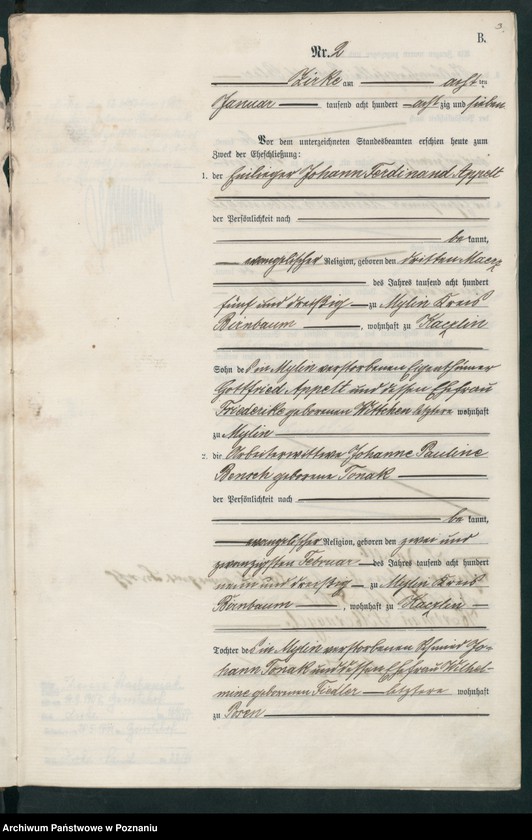 3.
B.
Nr. 2
Zirke am acht ten
Januar tausend acht hundert acht zig und sieben
Vor dem unterzeichneten Standesbeamten erschien heute zum
Zweck der Eheschließung:
1. der Einlieger Johann Ferdinand Appelt
der Persönlichkeit nach
be kannt,
evangelischer Religion, geboren den dritten Maerz
des Jahres tausend acht hundert
fünf und dreißig zu Mylin Kreis
Birnbaum, wohnhaft zu Kaczlin
Sohn des in Mylin verstorbenen Eigenthümer
Gottfried Appelt und dessen Ehefrau
Friederike geborenen Wittchen letztere wohnhaft
zu Mylin
2. die Arbeiterwittwe Johanne Pauline
geborene Tonak
der Persönlichkeit nach
be kannt,
evangelischer Religion, geboren den zwei und
zwanzigsten Februar des Jahres tausend acht hundert
neun und dreißig zu Mylin Kreis
Birnbaum, wohnhaft zu Kaczlin
Tochter des in Mylin verstorbenen Schmied Jo-
hann Tonak und dessen Ehefrau Wilhel-
mine geborenen Fiedler letztere wohnhaft
zu Posen
Archiwum Państwowe w Poznaniu